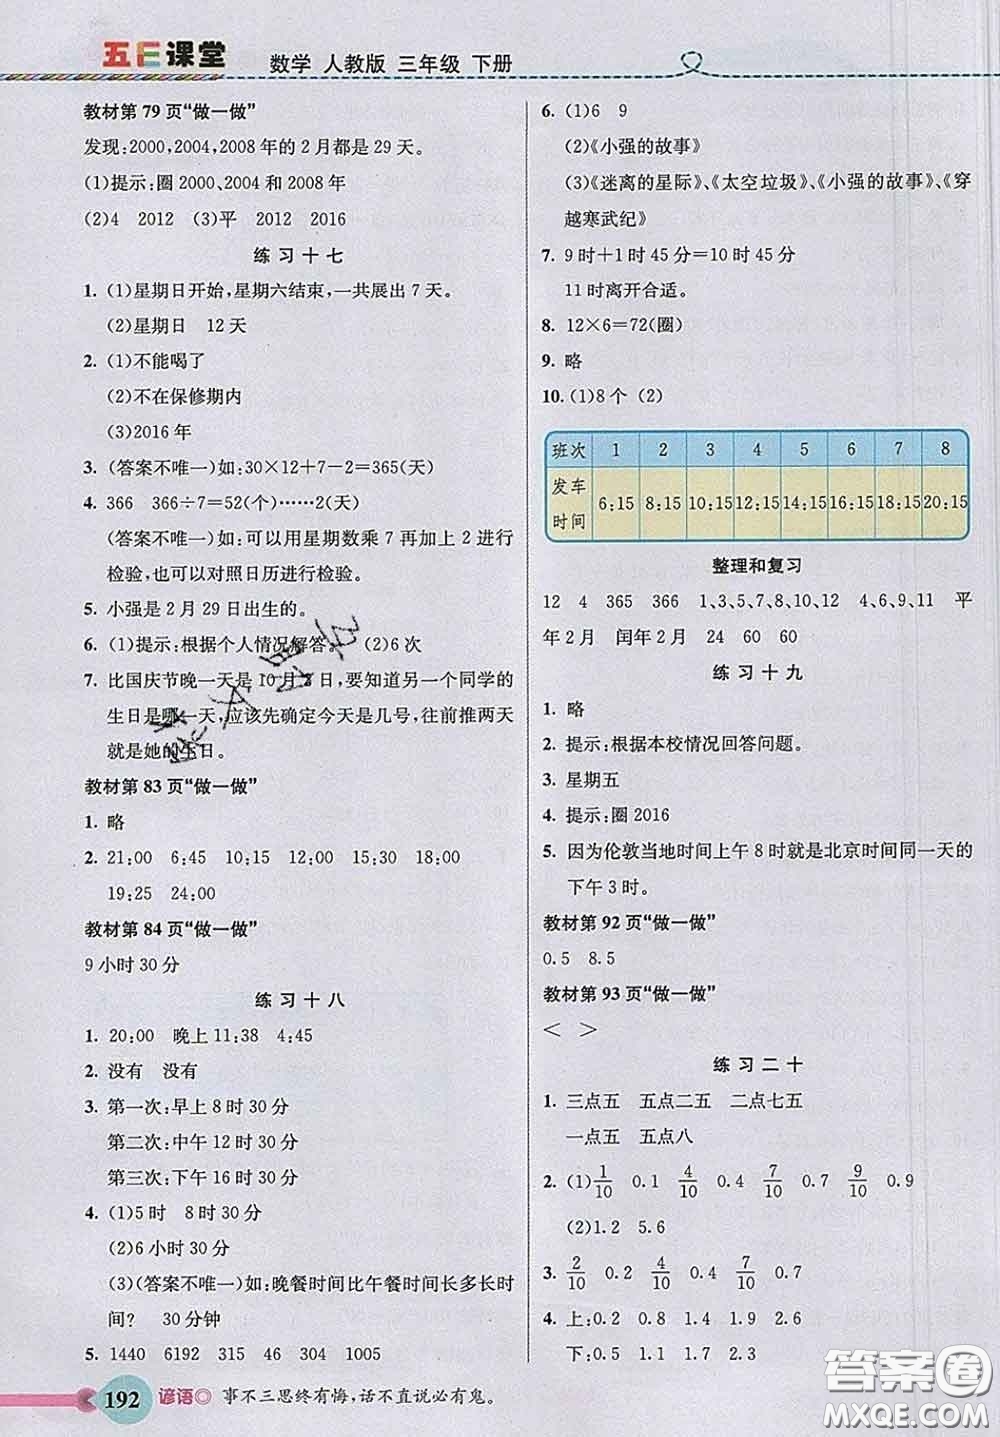 五E课堂 数学 人教版 三年级 下册
教材第79页“做一做”
发现:2000,2004,2008年的2月都是29天。
(1)提示:圈2000、2004和2008年
(2)4 2012 (3)平 2012 2016
练习十七
1. (1)星期日开始,星期六结束,一共展出7天。
(2)星期日 12天
2. (1)不能喝了
(2)不在保修期内
(3)2016年
3. (答案不唯一)如:30×12+7-2=365(天)
4. 366 366÷7=52(个)……2(天)
(答案不唯一)如:可以用星期数乘7再加上2进行
检验,也可以对照日历进行检验。
5. 小强是2月29日出生的。
6. (1)提示:根据个人情况解答。 (2)6次
7. 比国庆节晚一天是10月2日,要知道另一个同学的
生日是哪一天,应该先确定今天是几号,往前推两天
就是她的生日。
教材第83页“做一做”
1. 略
2. 21:00 6:45 10:15 12:00 15:30 18:00
19:25 24:00
教材第84页“做一做”
9小时30分
练习十八
1. 20:00 晚上11:38 4:45
2. 没有 没有
3. 第一次:早上8时30分
第二次:中午12时30分
第三次:下午16时30分
4. (1)5时 8时30分
(2)6小时30分
(3)(答案不唯一)如:晚餐时间比午餐时间长多长时
间? 30分钟
5. 1440 6192 315 46 304 1005
192 谚语◎ 事不三思终有悔,话不直说必有鬼。
6. (1)6 9
(2)《小强的故事》
(3)《迷离的星际》、《太空垃圾》、《小强的故事》、《穿
越寒武纪》
7. 9时+1时45分=10时45分
11时离开合适。
8. 12×6=72(圈)
9. 略
10. (1)8个 (2)
班次 1 2 3 4 5 6 7 8
发车时间 6:15 8:15 10:15 12:15 14:15 16:15 18:15 20:15
整理和复习
12 4 365 366 1、3、5、7、8、10、12 4、6、9、11 平
年2月 闰年2月 24 60 60
练习十九
1. 略
2. 提示:根据本校情况回答问题。
3. 星期五
4. 提示:圈2016
5. 因为伦敦当地时间上午8时就是北京时间同一天的
下午3时。
教材第92页“做一做”
0.5 8.5
教材第93页“做一做”
< >
练习二十
1. 三点五 五点二五 二点七五
一点五 五点八
2. (1)1/10 0.1 4/10 0.4 7/10 0.7 9/10 0.9
(2)1.2 5.6
3. 2/10 0.2 4/10 0.4 7/10 0.7
4. 上:0.3 1.4 1.9 2.6
下:0.5 1.2 1.7 2.3
答案圈
MXQE.COM